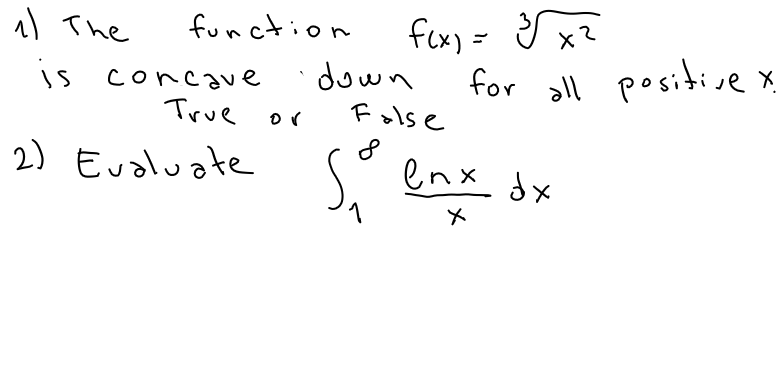 1) The function f(x) = ∛x²
is concave down for all positive x.
True or False
2) Evaluate ∫₁^∞ ln x / x dx